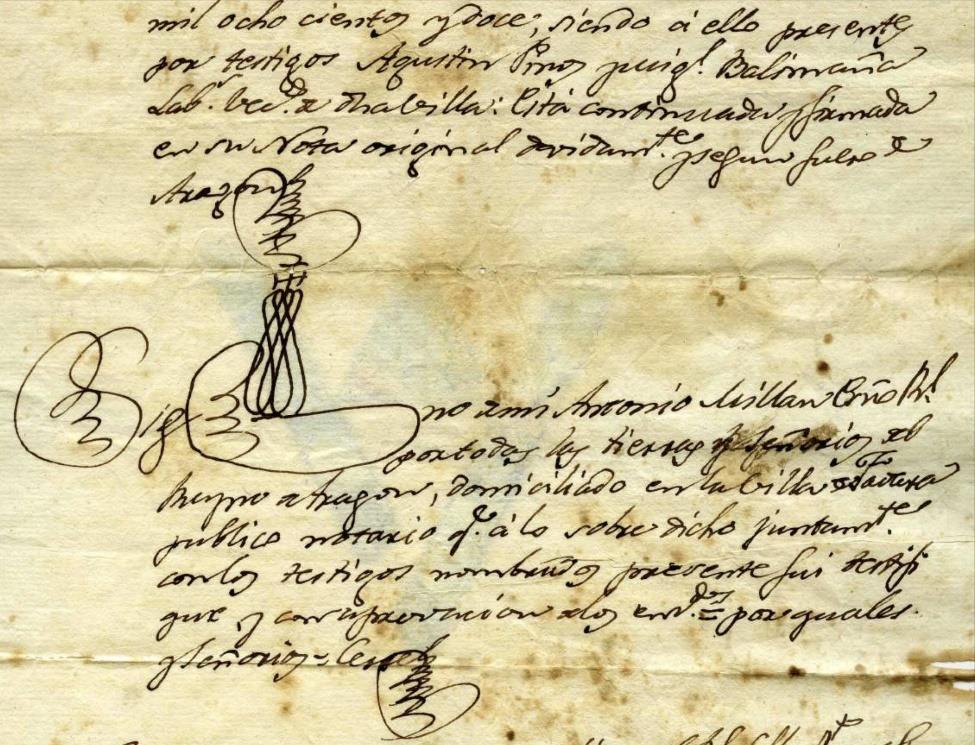 mil ocho cientos y doce, siendo á ello presentes
por testigos Agustin Pinos y Balimaña
Lab.s vec.s dha Villa: Está continuada y firmada
en su Nota original devidam.te y segun fuero de
Aragon
Sig no de mi Antonio Millan Esño R.l
por todas las tierras y señorios del
Reyno de Aragon, domiciliado en la Villa
publico notario q.e á lo sobre dicho juntam.te
con los testigos nombrados presente fui testifi
que, y con aprovacion de los enm.dos = por quales
y señorios =